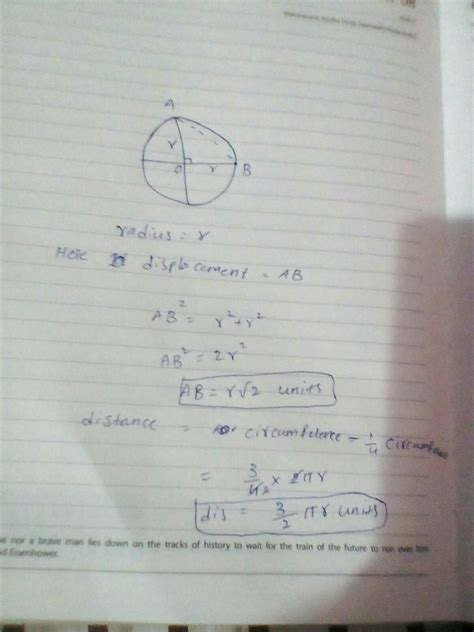 08
A
r
O r B
radius = r
Here displacement = AB
AB² = r² + r²
AB² = 2r²
AB = r√2 units
distance = circumference - 1/4 circumference
= 3/4 2 × 2πr
dis = 3/2 πr units
nor a brave man lies down on the tracks of history to wait for the train of the future to run over him
Eisenhower.